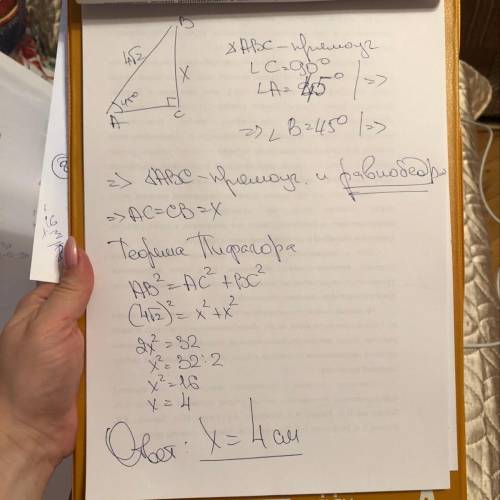 B
4√2
x
45°
A
C
△ABC - прямоуг
∠C=90°
∠A=45° | =>
=> ∠B=45° | =>
=> △ABC - прямоуг. и равнобедр
=> AC=CB=x
Теорема Пифагора
AB²=AC²+BC²
(4√2)²=x²+x²
2x²=32
x²=32:2
x²=16
x=4
Ответ: x=4 см